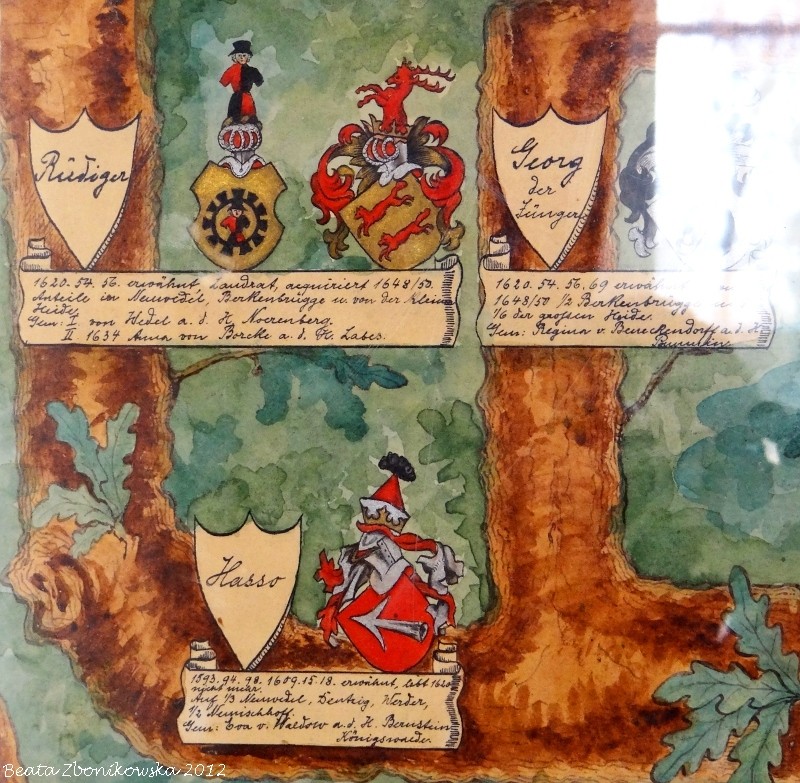 Rüdiger
1620. 54. 56. erwähnt Landrat, acquiriert 1648/50.
Anteile in Neuwedel, Berkenbrügge u. von der kleinen
Heide.
Gem: I von Wedel a. d. H. Noerenberg.
II 1634 Anna von Borcke a. d. H. Labes.
Georg
der
Jünger
1620. 54. 56. 69 erwähnt
1648/50 1/2 Berkenbrügge u
1/6 der grossen Heide.
Gem: Regina v. Beneckendorff a. d. H.
Hasso
1593. 94. 98. 1609. 15. 18. erwähnt, lebt 1620
nicht mehr.
Auf 1/3 Neuwedel, Werder,
1/2 Nemischhoff
Gem: Eva v. Waldow a. d. H. Bernstein
Königswalde.
Beata Zbonikowska 2012